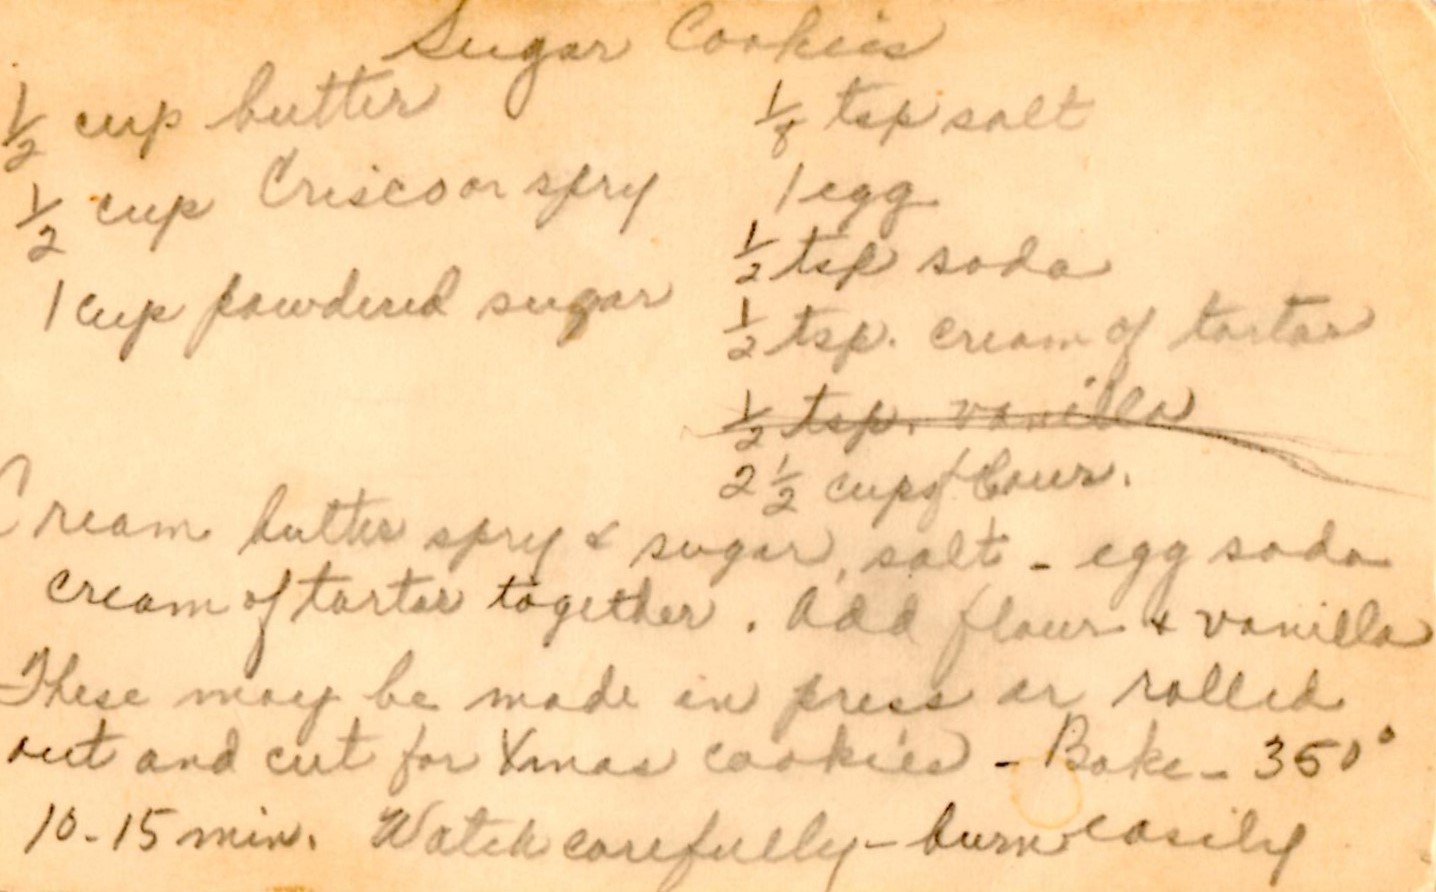 Sugar Cookies
1/2 cup butter
1/2 cup Crisco or spry
1 cup powdered sugar
1/8 tsp salt
1 egg
1/2 tsp soda
1/2 tsp. cream of tartar
1/2 tsp. vanilla
2 1/2 cups flour.
Cream butter spry & sugar, salt - egg soda
cream of tartar together. Add flour & vanilla
These may be made in press or rolled
out and cut for Xmas cookies - Bake - 350°
10-15 min. Watch carefully - burn easily